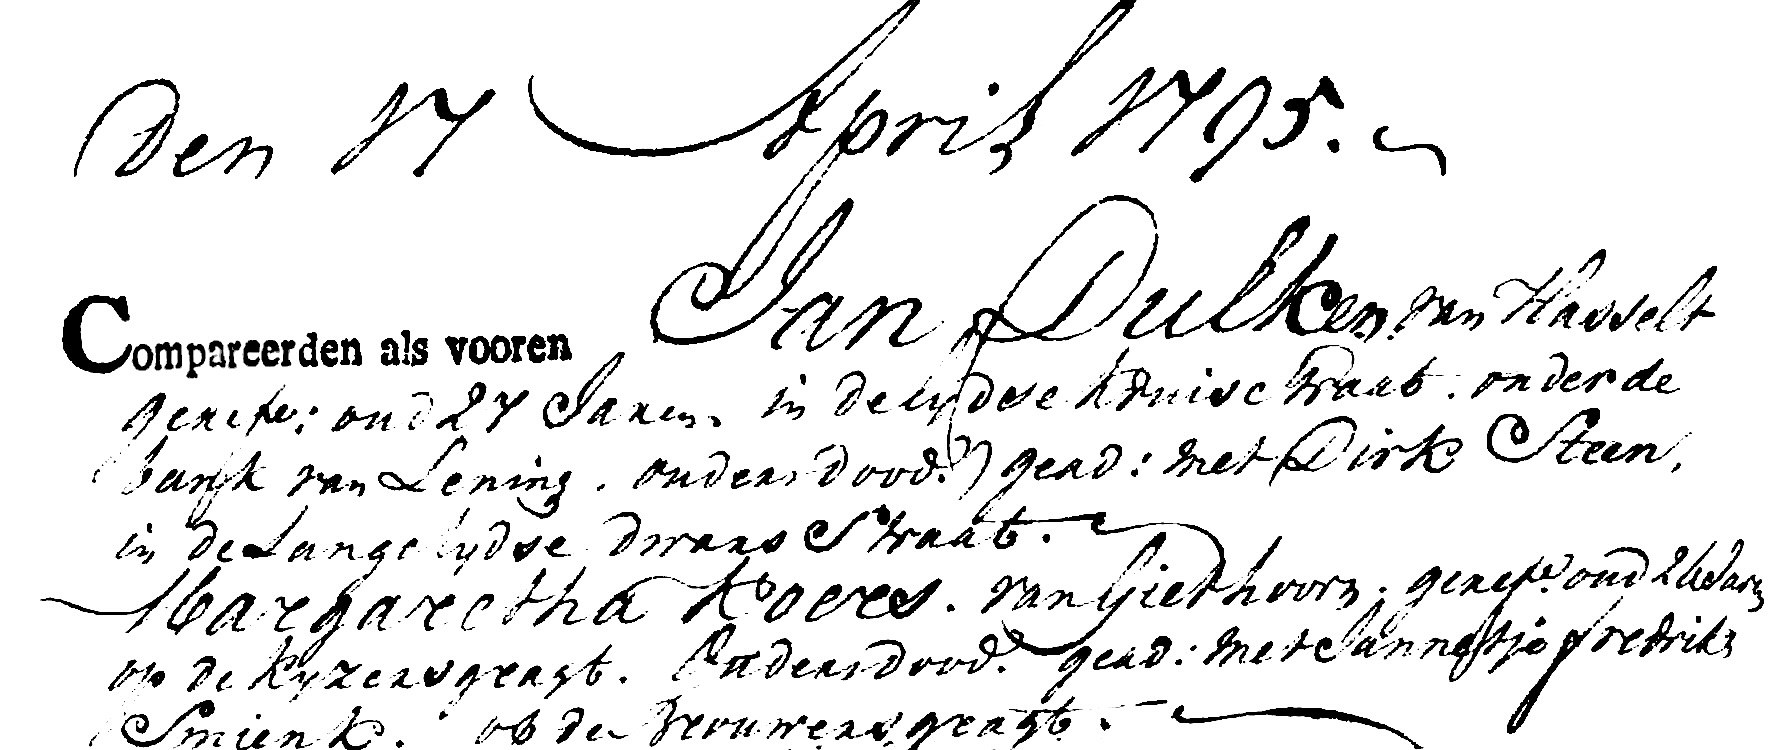 Den 17 April 1795.
Compareerden als vooren Jan Dulken van Hasselt
geref:e: oud 27 Jaren in de lydse kruis straat. onder de
bank van Lening. ouders dood.) gead: met Dirk Steen,
in de Lange lydse dwars Straat.
Margaretha Roers. van Giethoorn. geref:e oud 26 Jaren
op de Kyzersgragt. Ouders dood. gead: met Jannetje fredriks
Smienk. op de Brouwersgragt.